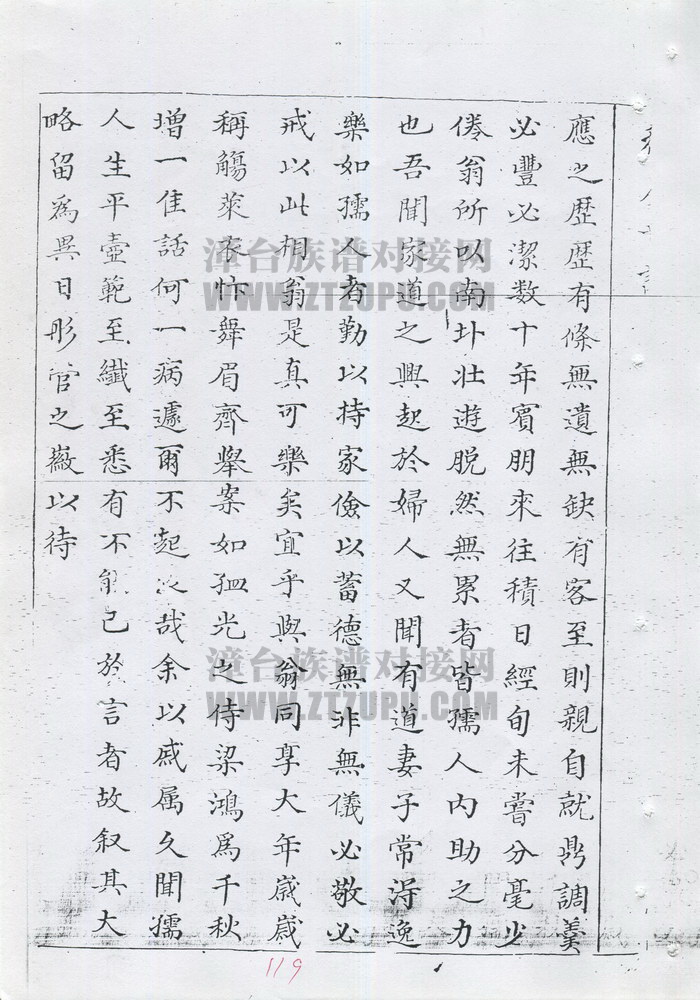 應之歷歷有條無遺無缺有客至則親自就鼎調羹
必豐必潔数十年賓朋來往積日經旬未嘗分毫少
倦翁所以南北壯遊脫然無累者皆孺人内助之力
也吾聞家道之興起於婦人又聞有道妻子常淂逸
樂如孺人者勤以持家儉以蓄德無非無儀必敬必
戒以此相翁是真可樂矣宜乎與翁同享大年歲歲
稱觴萊衣忭舞眉齊舉案如孟光之侍梁鴻爲千秋
增一佳話何一病遽爾不起哉余以戚属久聞孺
人生平壼範至纖至悉有不能已於言者故叙其大
略留爲異日彤管之徵以待
漳台族谱对接网
WWW.ZTZUPU.COM
漳台族谱对接网
WWW.ZTZUPU.COM
119